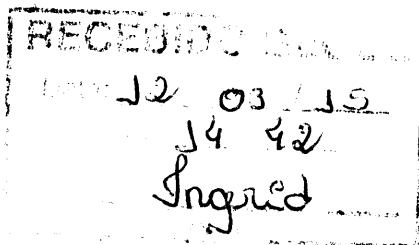 RECEBIDO
12 03 / 15
14 42
Ingrid